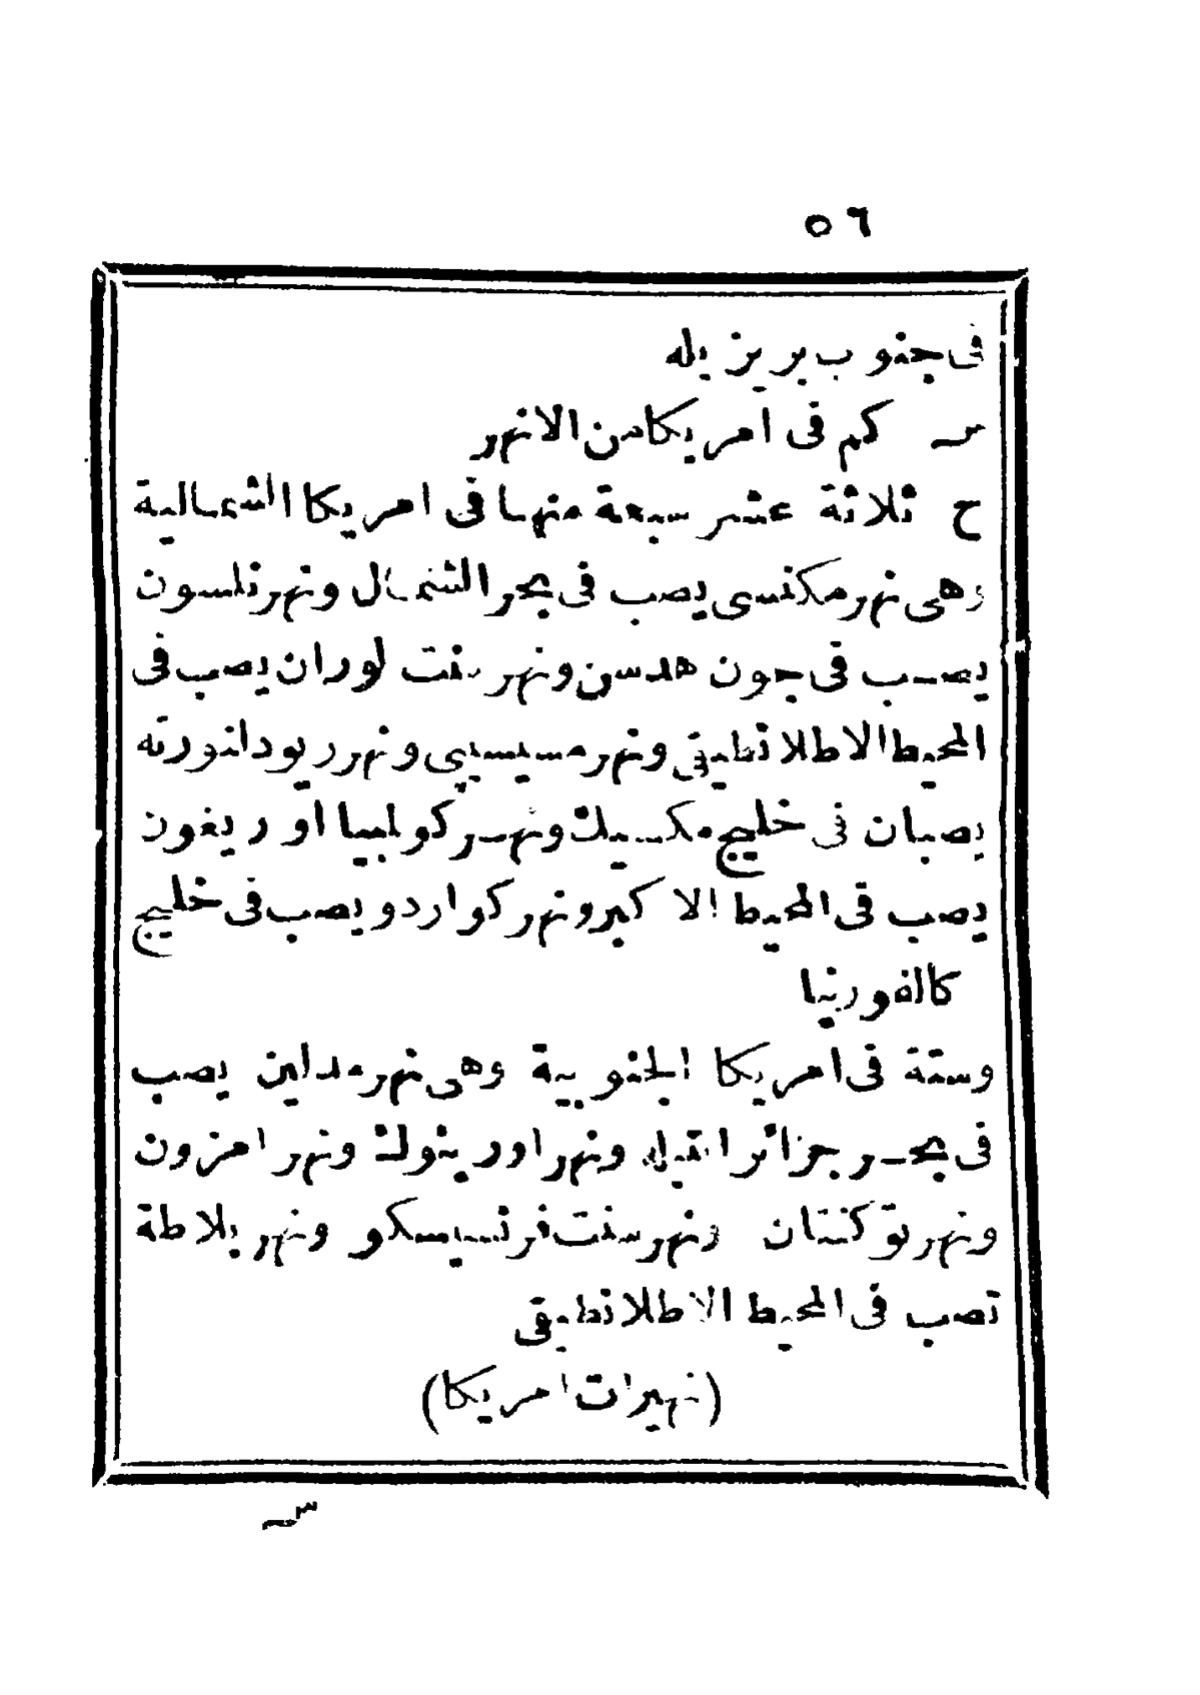 ٥٦
فى جنوب بريزيله
س كم فى امريكا من الانهر
ج ثلاثة عشر سبعة منها فى امريكا الشمالية
وهى نهر مكنسى يصب فى بحر الشمال ونهر نلسون
يصب فى جون هدسن ونهر سنت لوران يصب فى
المحيط الاطلانطيقى ونهر مسيسيپى ونهر ريودلنورته
يصبان فى خليج مكسيك ونهر كولمبيا او ريغون
يصب فى المحيط الاكبر ونهر كواردو يصب فى خليج
كالفورنيا
وستة فى امريكا الجنوبية وهى نهر مدلين يصب
فى بحر جزائر انتيله ونهر اورينوك ونهر امزون
ونهر توكنتان ونهر سنت فرنسيسكو ونهر پلاطة
تصب فى المحيط الاطلانطيقى
(نهيرات امريكا)
س